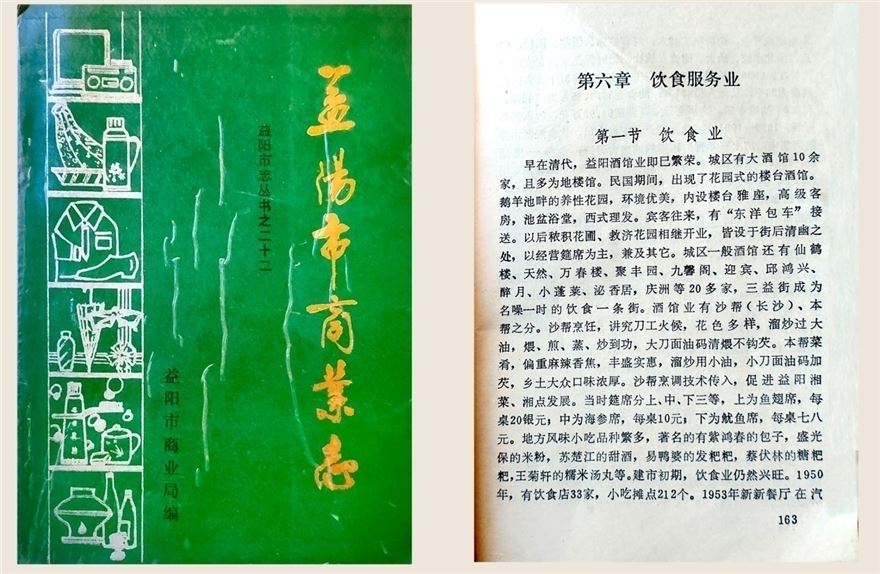 益陽市商業志
益阳市志丛书之二十二
益阳市商业局编
第六章 饮食服务业
第一节 饮食业
早在清代，益阳酒馆业即已繁荣。城区有大酒馆10余
家，且多为地楼馆。民国期间，出现了花园式的楼台酒馆。
鹅羊池畔的养性花园，环境优美，内设楼台雅座，高级客
房，池盆浴堂，西式理发。宾客往来，有“东洋包车”接
送。以后秾积花圃、救济花园相继开业，皆设于街后清幽之
处，以经营筵席为主，兼及其它。城区一般酒馆还有仙鹤
楼、天然、万春楼、聚丰园、九馨阁、迎宾、邱鸿兴、
醉月、小蓬莱、泌香居，庆洲等20多家，三益街成为
名噪一时的饮食一条街。酒馆业有沙帮（长沙）、本
帮之分。沙帮烹饪，讲究刀工火候，花色多样，溜炒过大
油，煨、煎、蒸、炒到功，大刀面油码清煨不钩芡。本帮菜
肴，偏重麻辣香焦，丰盛实惠，溜炒用小油，小刀面油码加
芡，乡土大众口味浓厚。沙帮烹调技术传入，促进益阳湘
菜、湘点发展。当时筵席分上、中、下三等，上为鱼翅席，每
桌20银元；中为海参席，每桌10元；下为鱿鱼席，每桌七八
元。地方风味小吃品种繁多，著名的有紫鸿春的包子，盛光
保的米粉，苏楚江的甜酒，易鸭婆的发粑粑，蔡伏林的糖粑
粑，王菊轩的糯米汤丸等。建市初期，饮食业仍然兴旺。1950
年，有饮食店33家，小吃摊点212个。1953年新新餐厅在汽
163